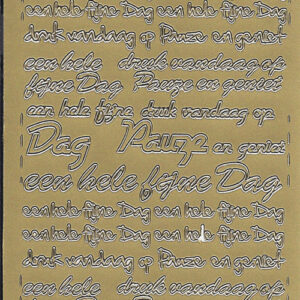 een hele fijne Dag een hele fijne Dag
druk vandaag op Pauze en geniet
een hele druk vandaag op
fijne Dag Pauze en geniet
een hele fijne druk vandaag op
Dag Pauze en geniet
een hele fijne Dag
een hele fijne Dag een hele fijne Dag
een hele fijne Dag een hele fijne Dag
druk vandaag op Pauze en geniet
een hele druk vandaag op
fijne Dag Pauze en geniet